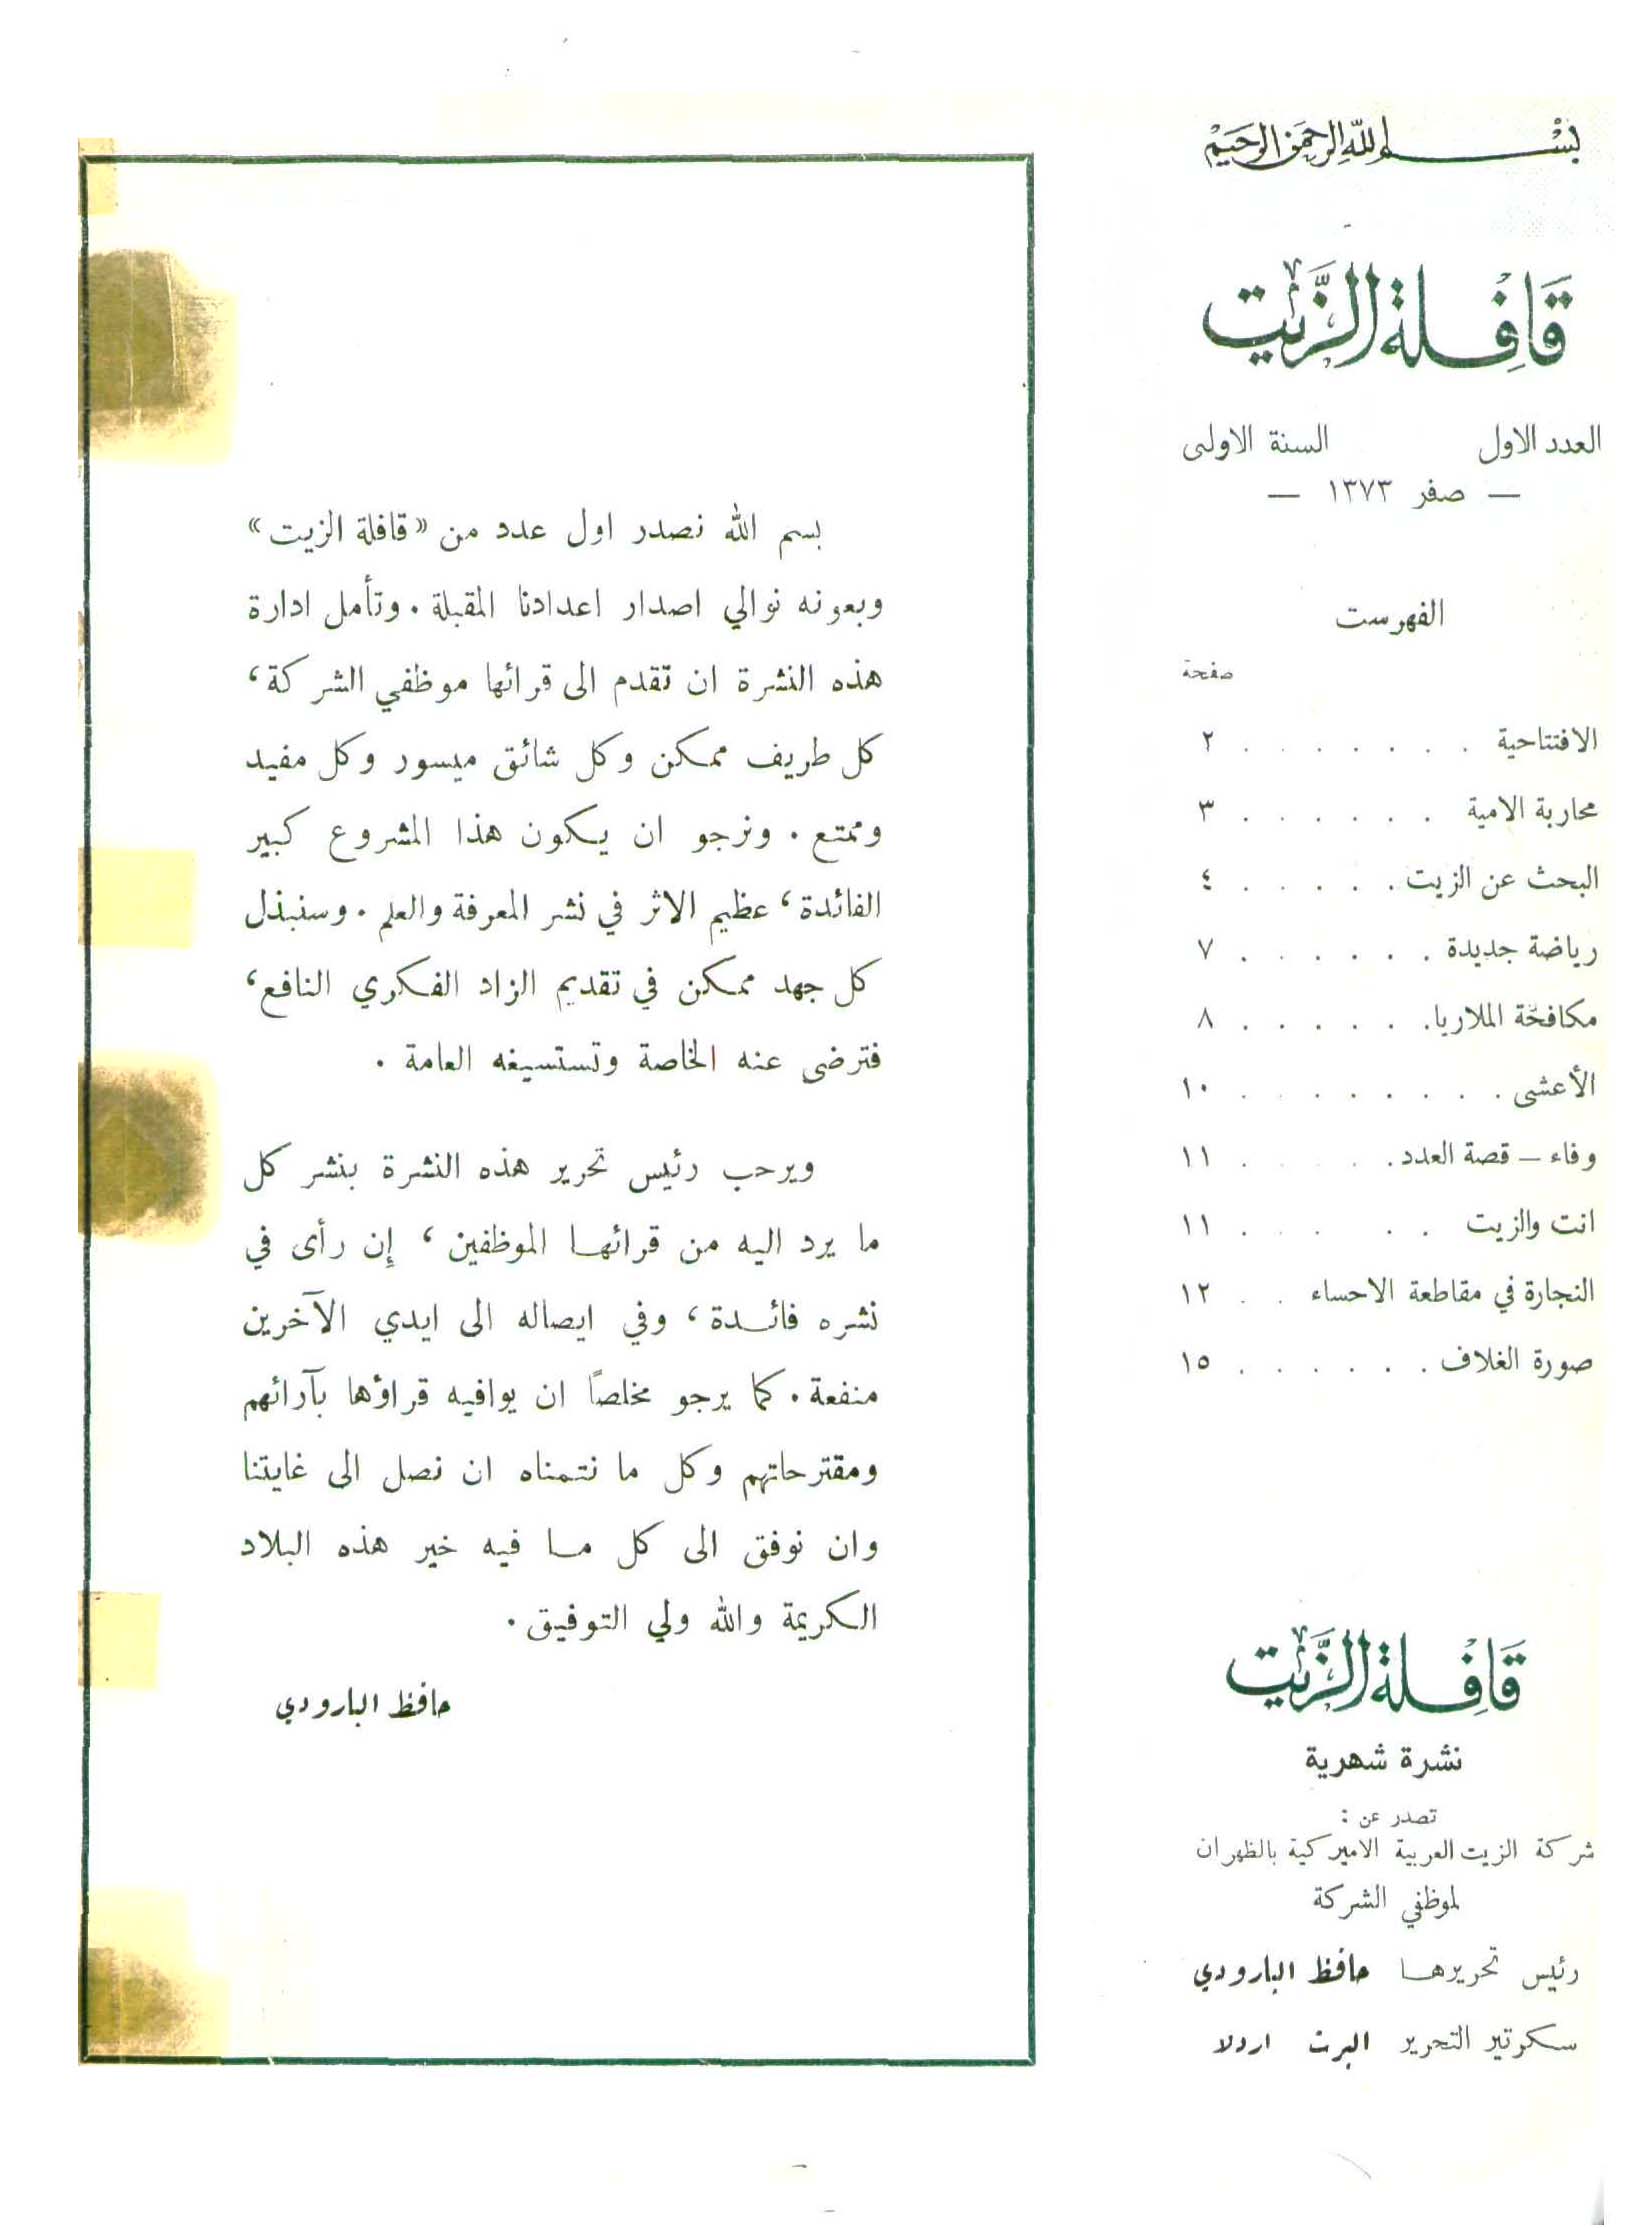 بسم الله الرحمن الرحيم
قافلة الزيت
العدد الاول السنة الاولى
— صفر ١٣٧٣ —
الفهرست
صفحة
الافتتاحية . . . . . . . ٢
محاربة الامية . . . . . . ٣
البحث عن الزيت . . . . . ٤
رياضة جديدة . . . . . . ٧
مكافحة الملاريا . . . . . . ٨
الأعشى . . . . . . . . ١٠
وفاء — قصة العدد . . . . . ١١
انت والزيت . . . . . ١١
النجارة في مقاطعة الاحساء . . ١٢
صورة الغلاف . . . . . . ١٥
قافلة الزيت
نشرة شهرية
تصدر عن :
شركة الزيت العربية الاميركية بالظهران
لموظفي الشركة
رئيس تحريرها حافظ البارودي
سكرتير التحرير البرت اردلا
بسم الله نصدر اول عدد من «قافلة الزيت»
وبعونه نوالي اصدار اعدادنا المقبلة . وتأمل ادارة
هذه النشرة ان تقدم الى قرائها موظفي الشركة ،
كل طريف ممكن وكل شائق ميسور وكل مفيد
وممتع . ونرجو ان يكون هذا المشروع كبير
الفائدة ، عظيم الاثر في نشر المعرفة والعلم . وسنبذل
كل جهد ممكن في تقديم الزاد الفكري النافع ،
فترضى عنه الخاصة وتستسيغه العامة .
ويرحب رئيس تحرير هذه النشرة بنشر كل
ما يرد اليه من قرائها الموظفين ، إن رأى في
نشره فائدة ، وفي ايصاله الى ايدي الآخرين
منفعة . كما يرجو مخلصاً ان يوافيه قراؤها بآرائهم
ومقترحاتهم وكل ما نتمناه ان نصل الى غايتنا
وان نوفق الى كل ما فيه خير هذه البلاد
الكريمة والله ولي التوفيق .
حافظ البارودي